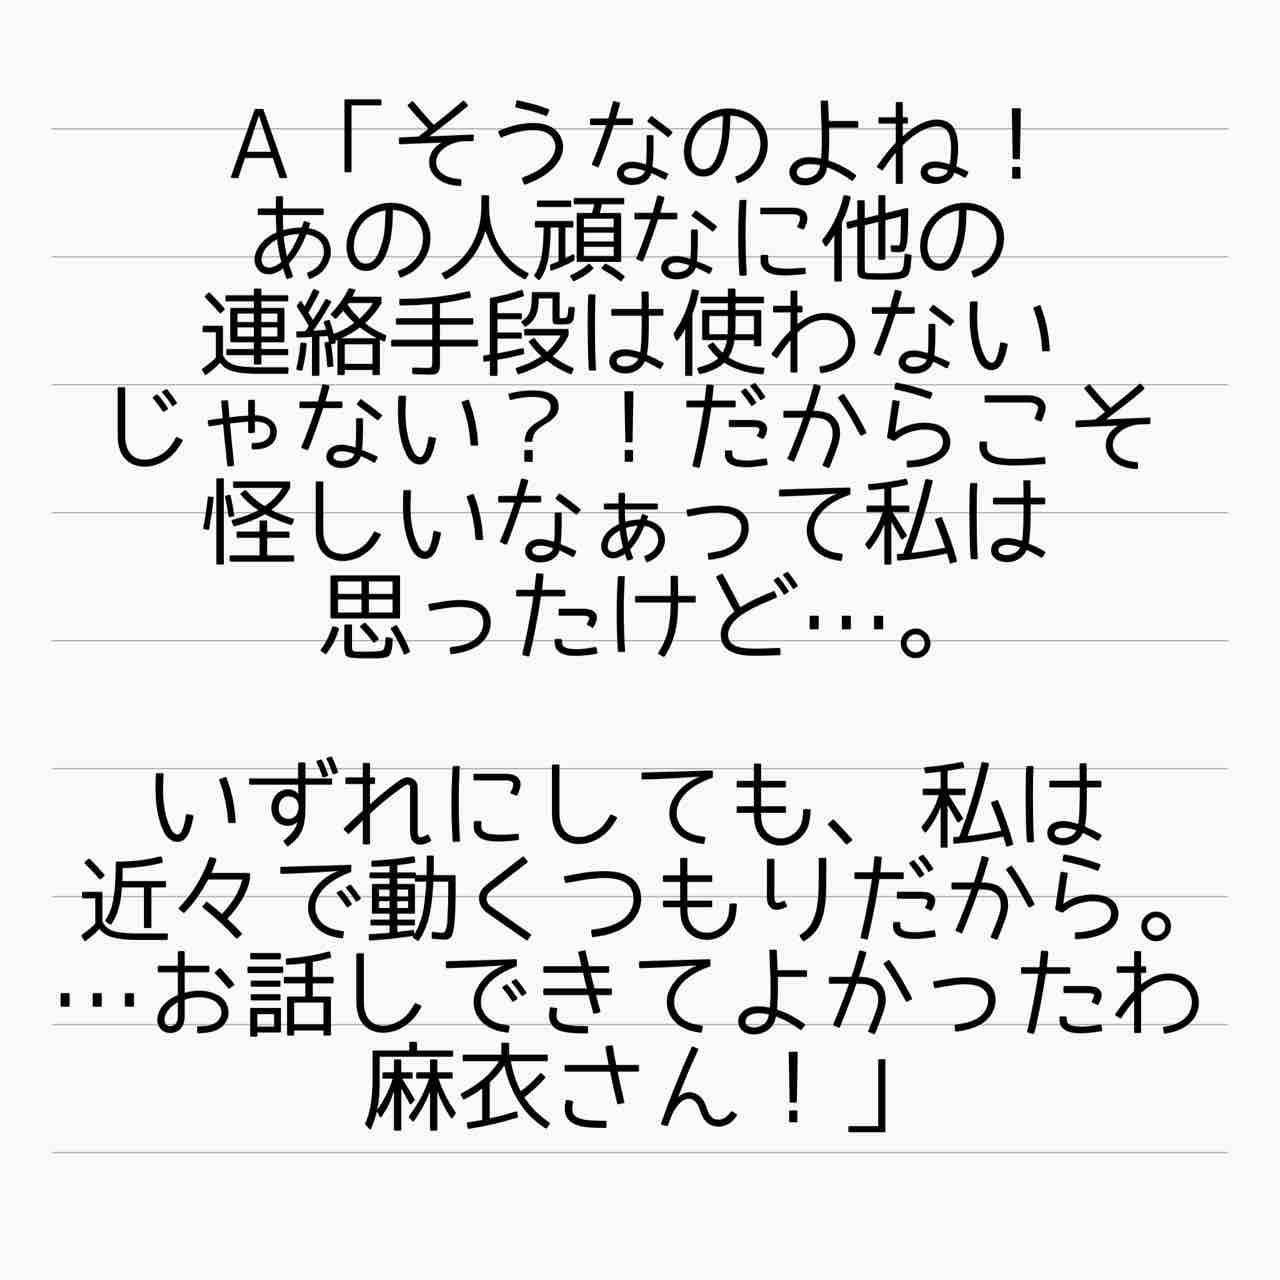 A「そうなのよね！
あの人頑なに他の
連絡手段は使わない
じゃない？！だからこそ
怪しいなぁって私は
思ったけど…。
いずれにしても、私は
近々で動くつもりだから。
…お話しできてよかったわ
麻衣さん！」